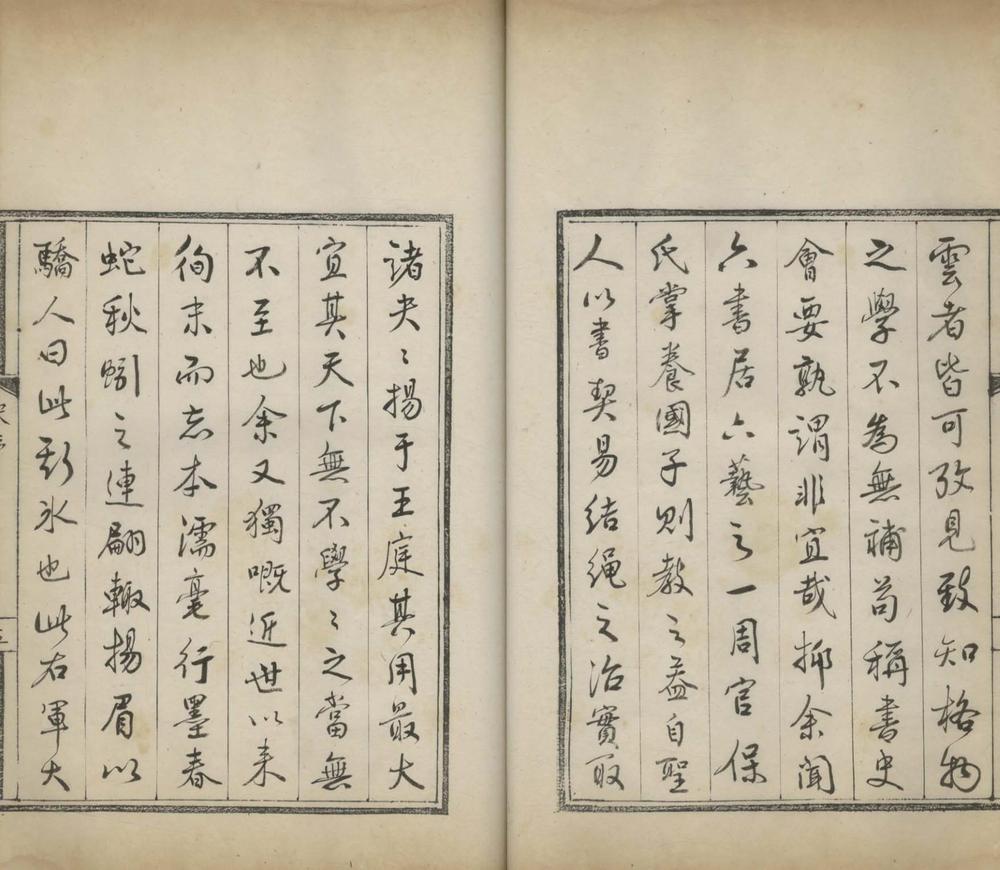 雲者皆可攷見致知格物
之學不為無補茍稱書史
會要孰謂非宜哉抑余聞
六書居六藝之一周官保
氏掌養國子則教之蓋自聖
人以書契易結繩之治實取
諸夬〻揚于王庭其用最大
宜其天下無不學〻之當無
不至也余又獨嘅近世以来
徇末而忘本濡毫行墨春
蛇秋蚓之連翩輙揚眉以
驕人曰此斯氷也此右軍大